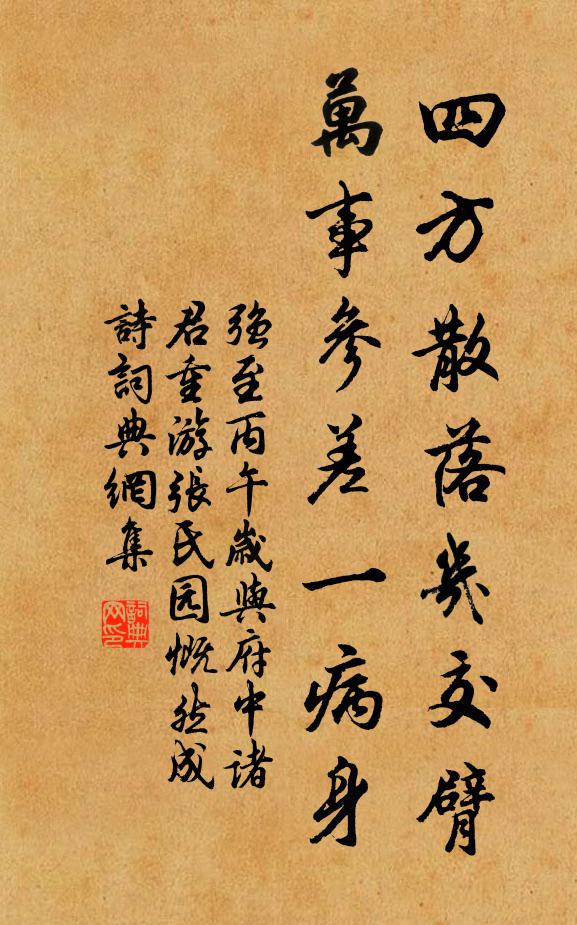 四方散落幾交臂
萬事參差一病身
強至丙午歲與府中諸
君重游張氏园慨然成
詩詞典網集
詞典
网印